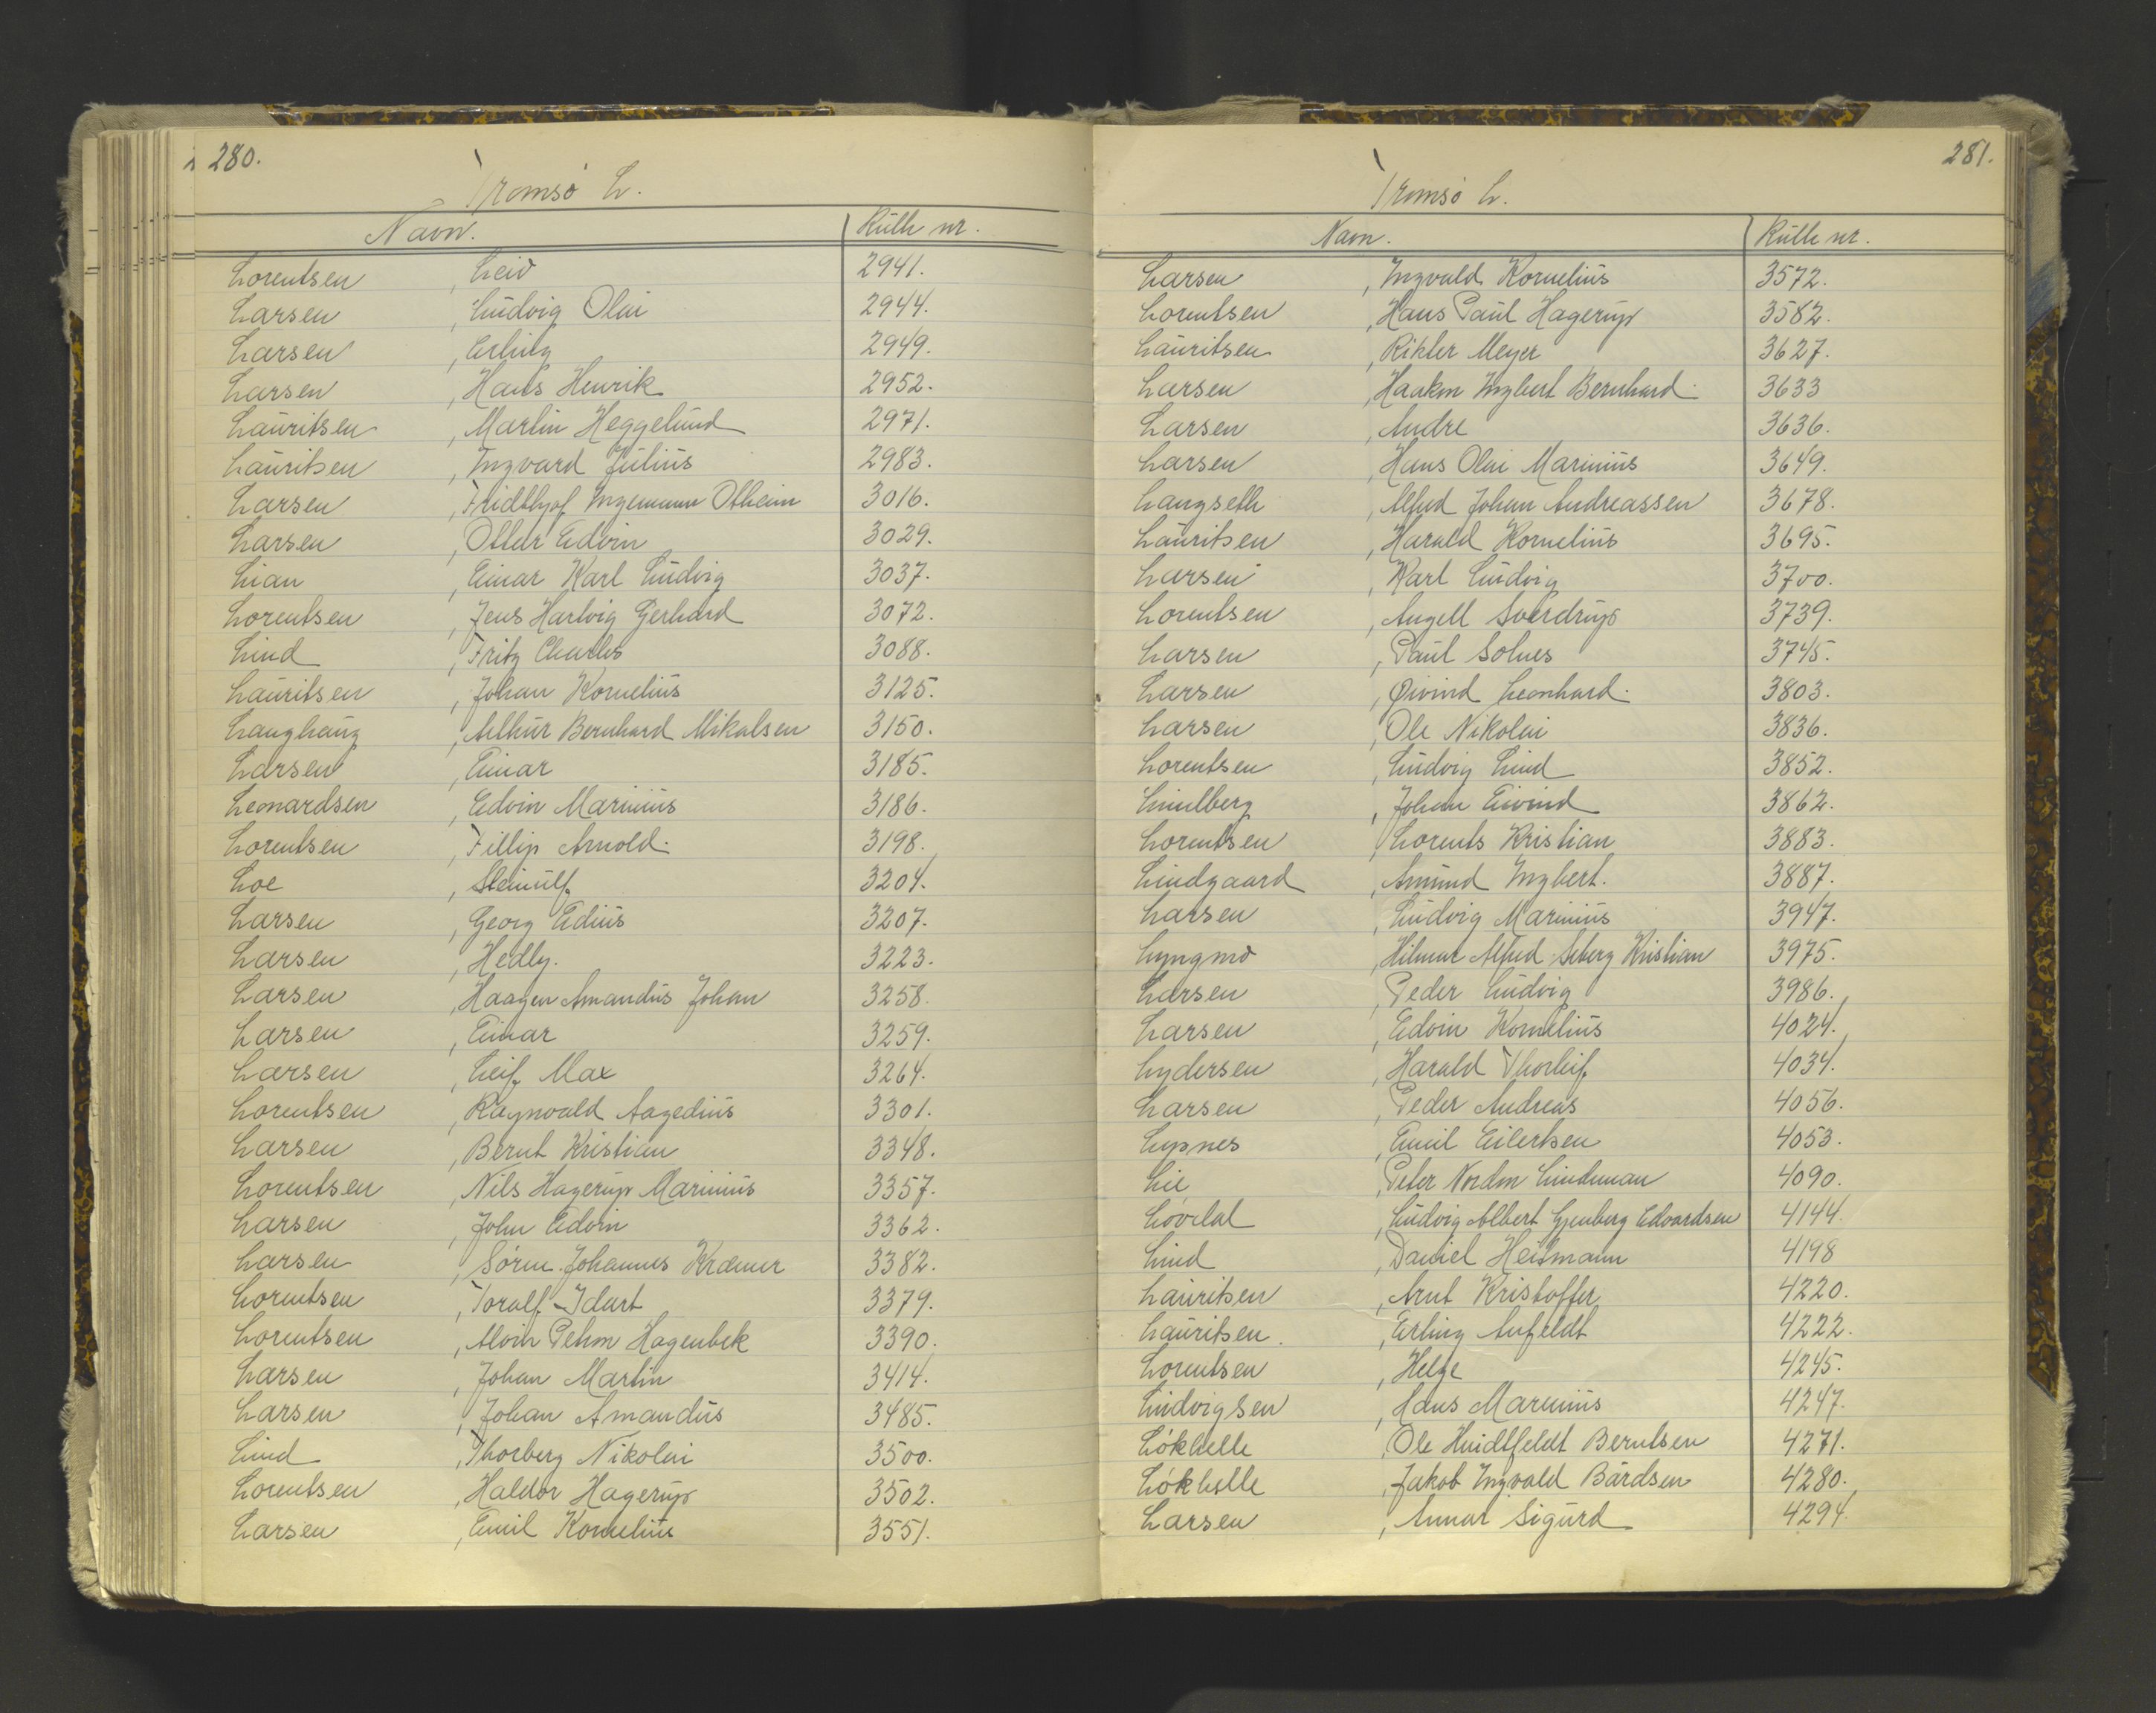 280.
Tromsø L.
Navn. Rulle nr.
Lorentsen, Leiv 2941.
Larsen, Ludvig Olai 2944.
Larsen, Erling 2949.
Larsen, Hans Henrik 2952.
Lauritsen, Martin Heggelund 2971.
Lauritsen, Ingvard Julius 2983.
Larsen, Fridthjof Ingemann Otheim 3016.
Larsen, Ottar Edvin 3029.
Lian, Einar Karl Ludvig 3037.
Lorentsen, Jens Hartvig Gerhard 3072.
Lind, Fritz Charles 3088.
Lauritsen, Johan Kornelius 3125.
Langhaug, Arthur Bernhard Mikalsen 3150.
Larsen, Einar 3185.
Leonardsen, Edvin Marinius 3186.
Lorentsen, Fillip Arnold. 3198.
Loe, Steinulf 3204.
Larsen, Georg Edius 3207.
Larsen, Hedly. 3223.
Larsen, Haagen Amandus Johan 3258.
Larsen, Einar 3259.
Larsen, Leif Max 3264.
Lorentsen, Ragnvald Aagedius 3301.
Larsen, Bernt Kristian 3348.
Lorentsen, Nils Hagerup Marinius 3357.
Larsen, John Edvin 3362.
Larsen, Søren Johannes Kræmer 3382.
Lorentsen, Toralf Idart 3379.
Lorentsen, Alvin Hagenbek 3390.
Larsen, Johan Martin 3414.
Larsen, Johan Amandus 3485.
Lind, Thorberg Nikolai 3500.
Lorentsen, Haldor Hagerup 3502.
Larsen, Emil Kornelius 3551.
281.
Tromsø L.
Navn. Rulle nr.
Larsen, Ingvald Kornelius 3572.
Lorentsen, Hans Paul Hagerup 3582.
Lauritsen, Rikter Meyer 3627.
Larsen, Haakon Ingbert Bernhard 3633
Larsen, Andre 3636.
Larsen, Hans Olai Marinius 3649.
Langseth, Alfred Johan Andreassen 3678.
Lauritsen, Harald Kornelius 3695.
Larsen, Karl Ludvig 3700.
Lorentsen, Angell Sverdrup 3739.
Larsen, Paul Solnes 3745.
Larsen, Øivind Leonhard. 3803.
Larsen, Ole Nikolai 3836.
Lorentsen, Ludvig Lind 3852.
Lindberg, Johan Eivind 3862.
Lorentsen, Lorents Kristian 3883.
Lindgaard, Amund Ingbert. 3887.
Larsen, Ludvig Marinius 3947.
Lyngmo, Hilmar Alfred Seberg Kristian 3975.
Larsen, Peder Ludvig 3986.
Larsen, Edvin Kornelius 4024.
Lydersen, Harald Thorleif 4034.
Larsen, Peder Andreas 4056.
Lysnes, Emil Eilertsen 4053.
Lie, Peter Nordm Lindeman 4090.
Ludvig Albert Edvardsen 4144.
Lind, Daniel Heitmann 4198
Lauritsen, Arnt Kristoffer 4220.
Lauritsen, Erling Anfeldt 4222.
Lorentsen, Helge 4245.
Ludvigsen, Hans Marenius 4247.
Løkhelle, Ole Huidtfeldt Berntsen 4271.
Løkhelle, Jakob Ingvald Bårdsen 4280.
Larsen, Annar Sigurd 4294.